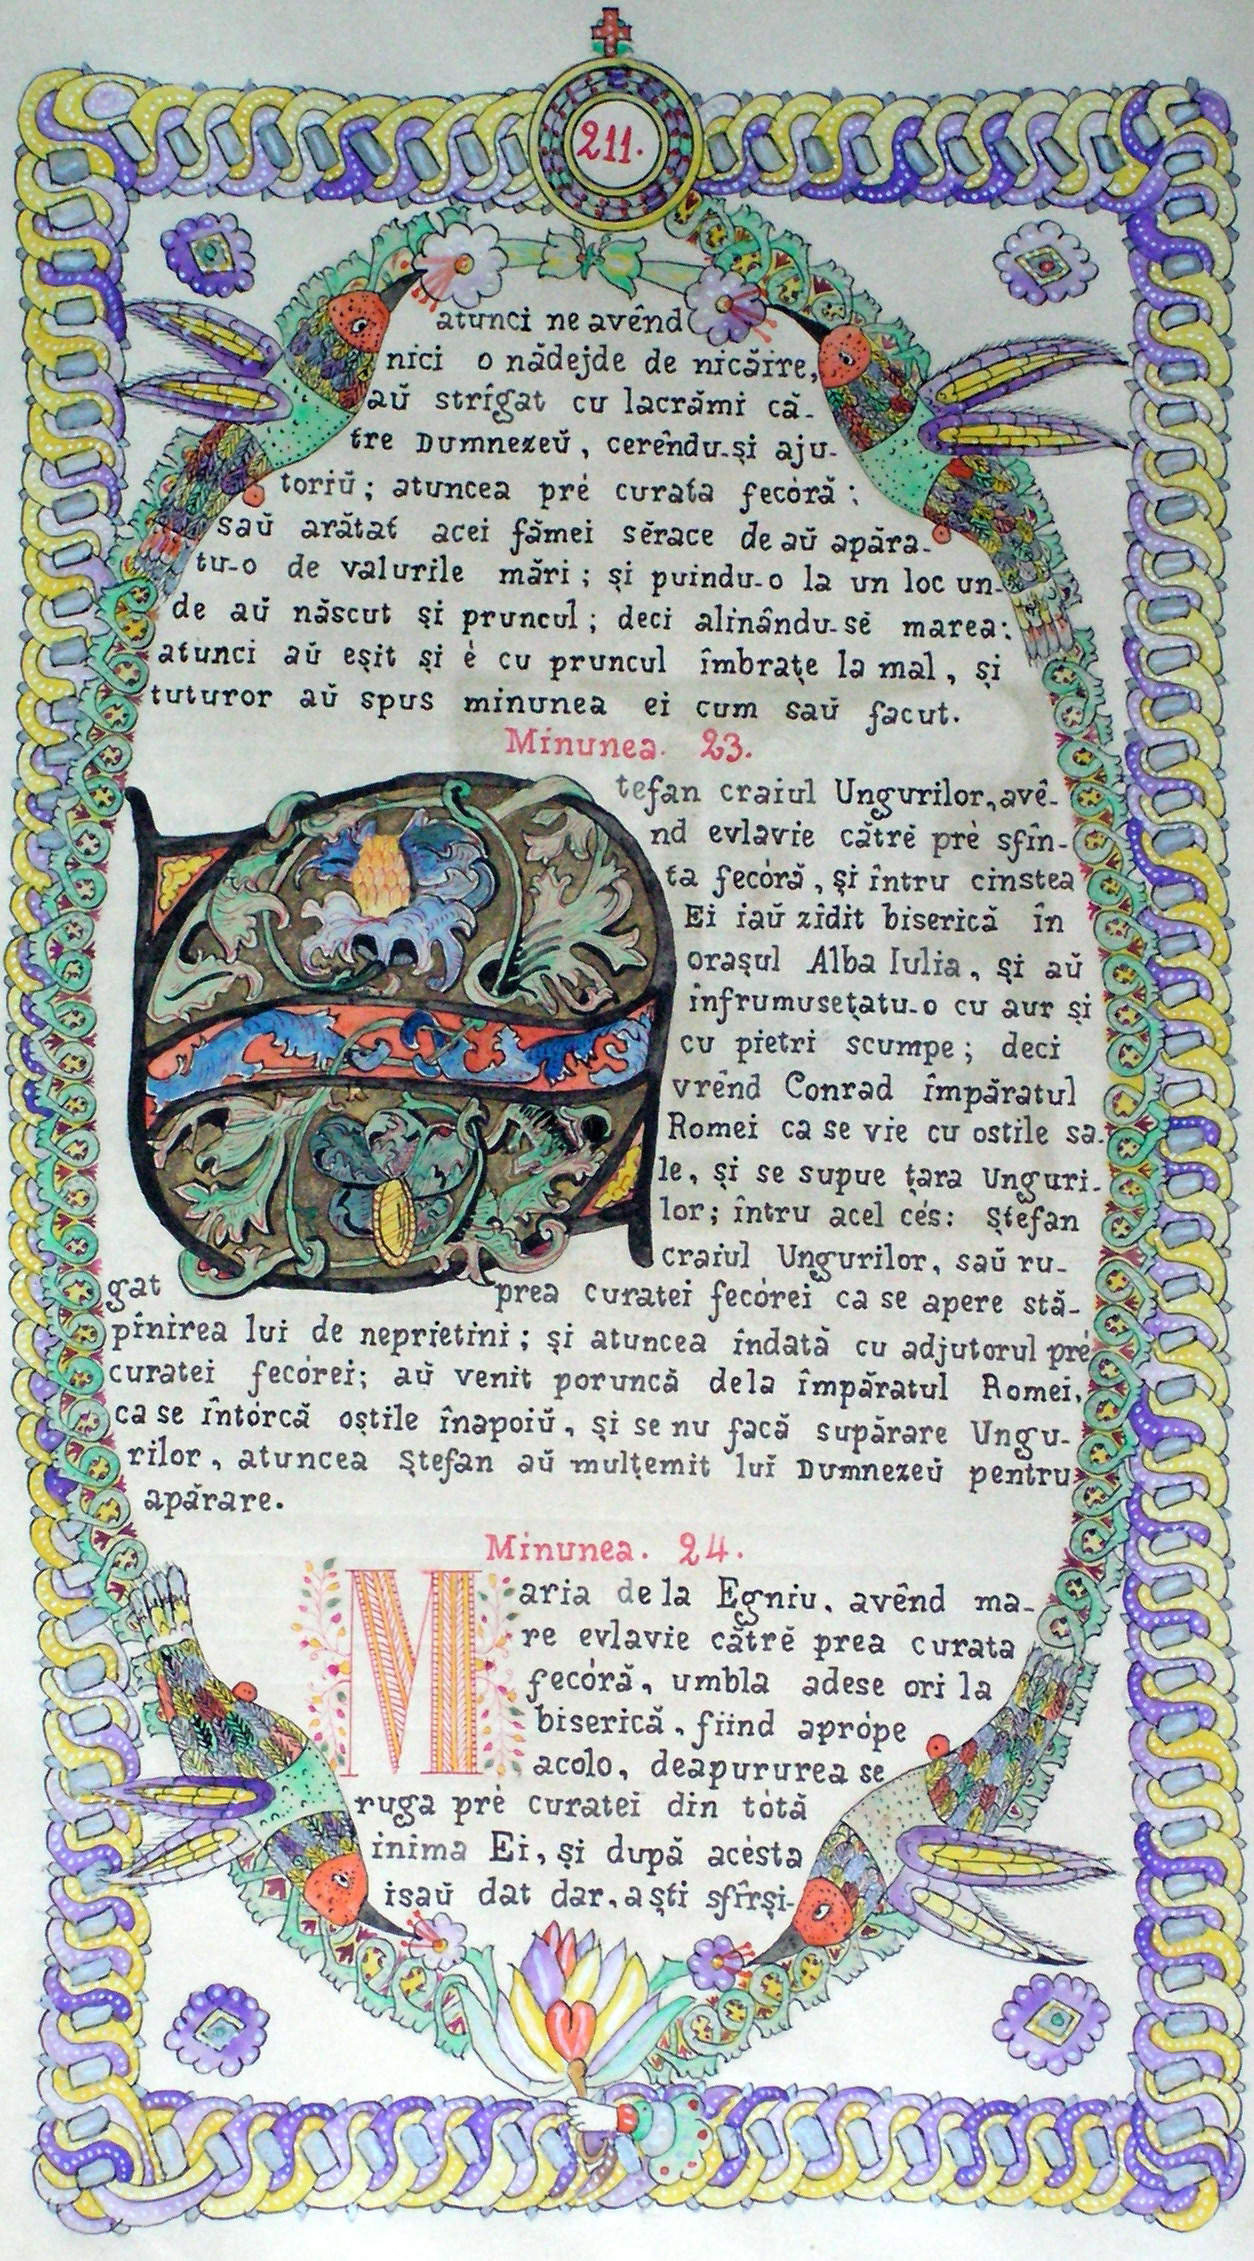 211.
atunci ne avênd
nici o nădejde de nicăire,
aŭ strîgat cu lacrămi că-
tre Dumnezeŭ, cerêndu-și aju-
toriŭ; atuncea pré curata fecóră;
saŭ arătat acei fămei sĕrace de aŭ apăra-
tu-o de valurile mări; și puindu-o la un loc un-
de aŭ născut și pruncul; deci alinându-sĕ marea;
atunci aŭ eșit și è cu pruncul îmbrațe la mal, și
tuturor aŭ spus minunea ei cum saŭ facut.
Minunea. 23.
Ștefan craiul Ungurilor, avê-
nd evlavie cătrĕ prè sfîn-
ta fecóră, și întru cinstea
Ei iaŭ zîdit biserică în
orașul Alba Iulia, și aŭ
înfrumusețatu-o cu aur și
cu pietri scumpe; deci
vrênd Conrad împăratul
Romei ca se vie cu ostile sa-
le, și se supue țara Unguri-
lor; întru acel cés: Ștefan
craiul Ungurilor, saŭ ru-
gat prea curatei fecórei ca se apere stă-
pînirea lui de neprietini; și atuncea îndată cu adjutorul pré
curatei fecórei; aŭ venit poruncă dela împăratul Romei,
ca se întórcă oștile înapoiŭ, și se nu facă supărare Ungu-
rilor, atuncea Ștefan aŭ mulțemit luĭ Dumnezeŭ pentru
apărare.
Minunea. 24.
Maria de la Egniu, avênd ma-
re evlavie cătrĕ prea curata
fecóră, umbla adese ori la
biserică, fiind aprópe
acolo, deapururea se
ruga prè curatei din tótă
inima Ei, și după acèsta
isaŭ dat dar, aști sfîrși-